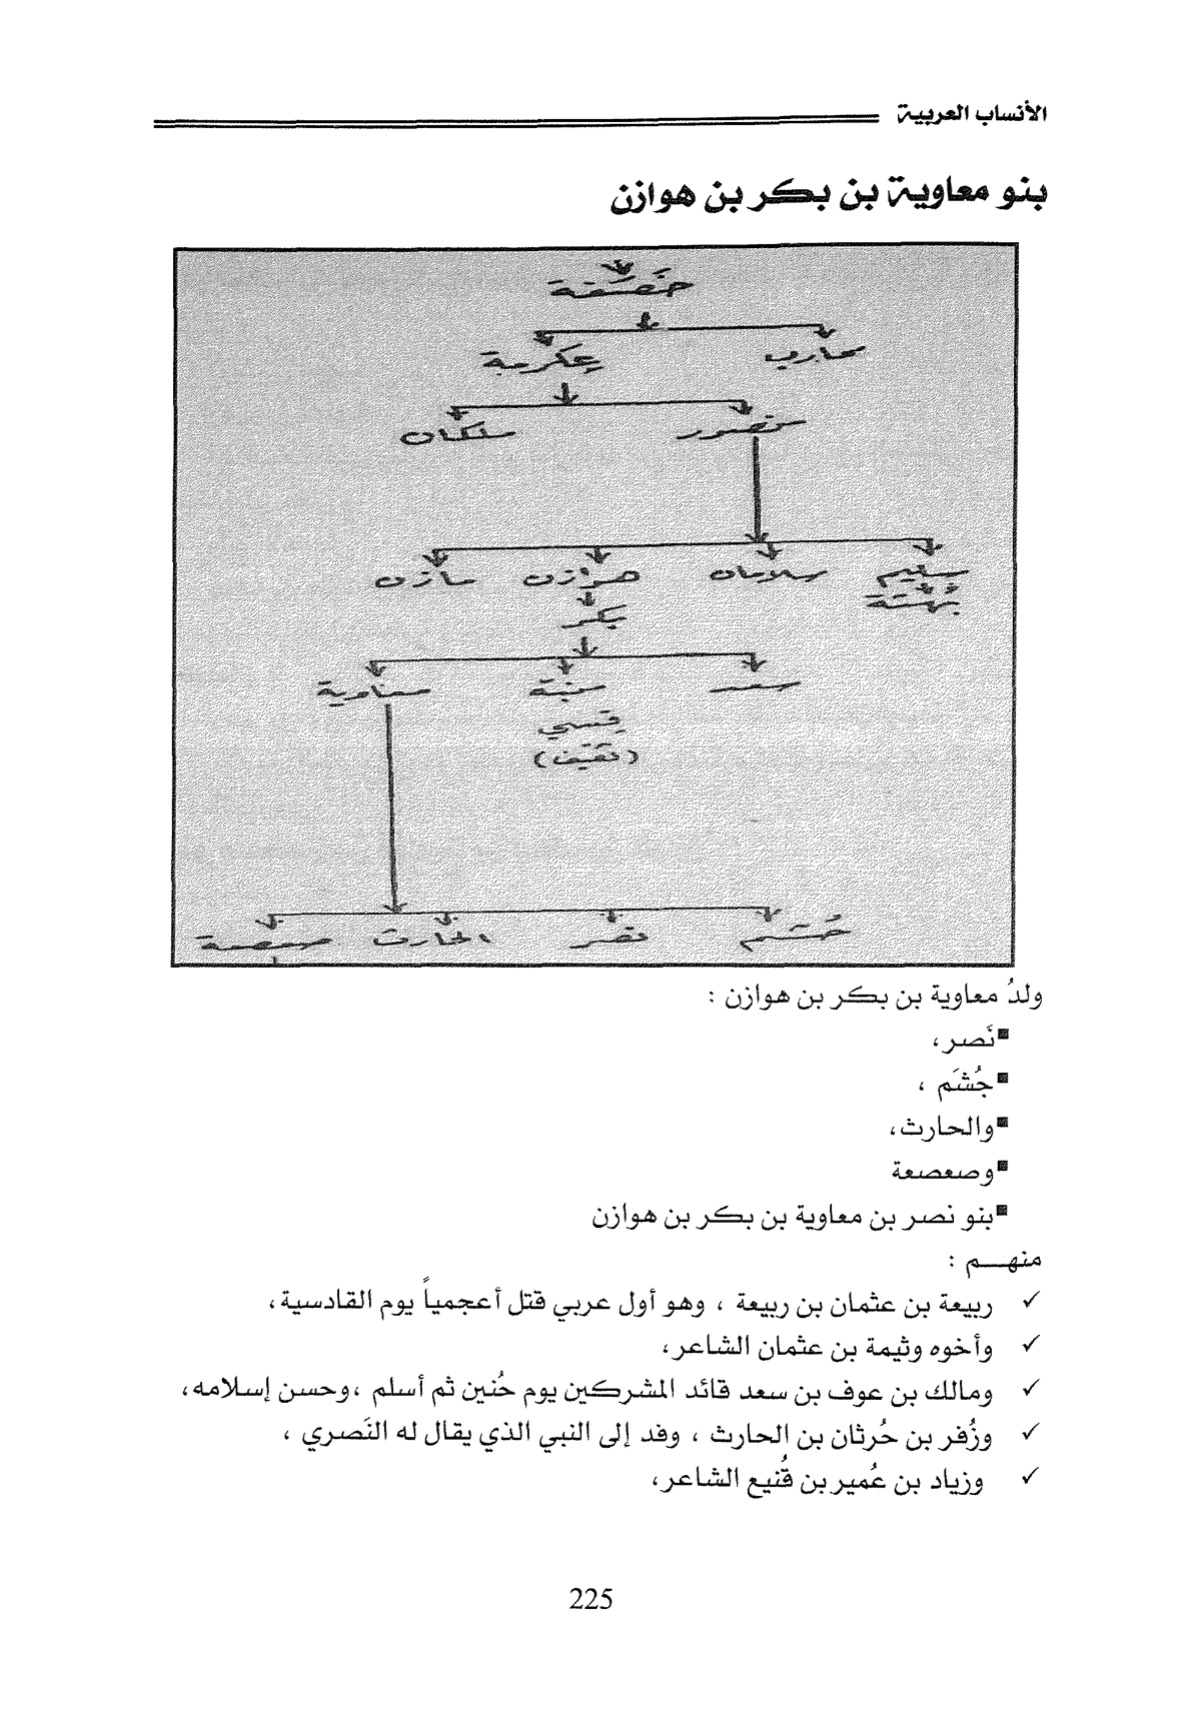 الأنساب العربية
بنو معاوية بن بكر بن هوازن
خَصَفة
محارب عِكرمة
منصور ملكان
سليم سلامان هوازن مازن
بُهْثَة بكر
سعد منبة معاوية
قِسي
(ثقيف)
جُشَم نصر الحارث صعصعة
ولدُ معاوية بن بكر بن هوازن :
▪نَصر،
▪جُشَم ،
▪والحارث،
▪وصعصعة
▪بنو نصر بن معاوية بن بكر بن هوازن
منهـــم :
✓ ربيعة بن عثمان بن ربيعة ، وهو أول عربي قتل أعجمياً يوم القادسية،
✓ وأخوه وثيمة بن عثمان الشاعر،
✓ ومالك بن عوف بن سعد قائد المشركين يوم حُنين ثم أسلم ،وحسن إسلامه،
✓ وزُفر بن حُرثان بن الحارث ، وفد إلى النبي الذي يقال له النَصري ،
✓ وزياد بن عُمير بن قُنيع الشاعر،
225